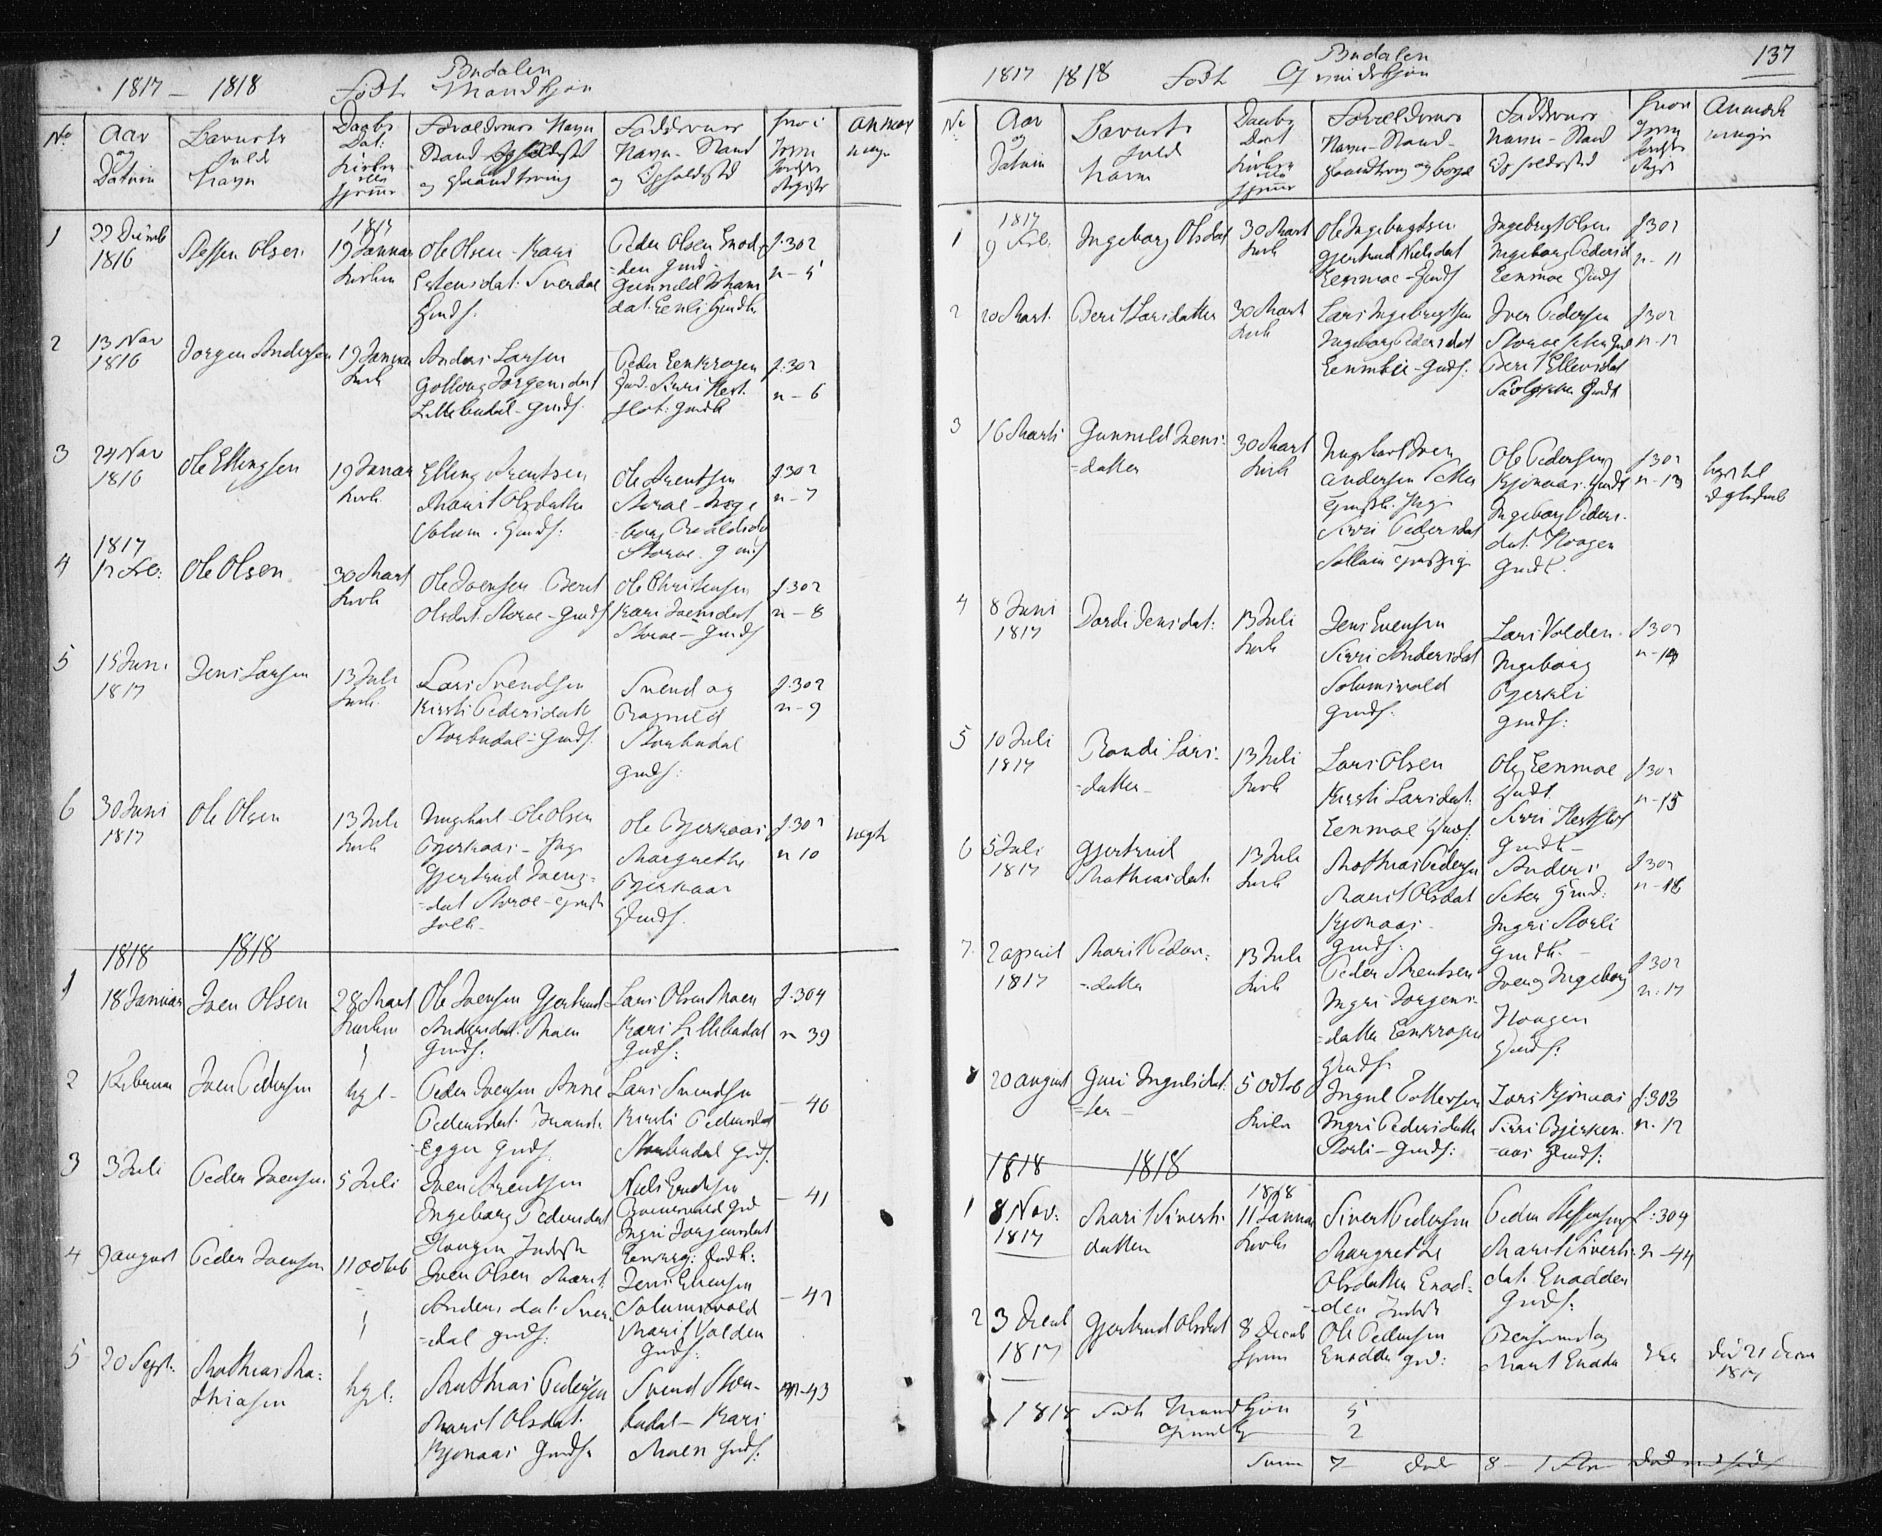 Budalen
1817 - 1818 Födt Mandkjön
No
Aar
og
Datum
Barnets
fuld
Navn
Daabs
Dat:
Kirken
eller
hjemme
Forældrenes Navn
Stand
og Haandtering
Faddernes
Navn - Stand
og Opholdsted
hvor i
Jevn
førelses
Register
Anmærkninger
1
22 Decemb
1816
Steffen Olsen
1817
19 Januar
Kirken
Ole Olsen - Kari
Estensdat: Sverdal
Gmdf:
Peder Olsen Enod
=den Gmd
Gunnild Johans
dat: Eenli Gmdk
f. 302
n - 5
2
13 Nov
1816
Jorgen Andersen
19 Januar
Kirk
Anders Larsen
Golloug Jorgensdat
Lillebudal - Gmdf.
Peder Eenkrogen
Gmd. Sirri Hest
flot: Gmdk
f. 302
n - 6
3
24 Nov
1816
Ole Ellingsen
19 Januar
Kirk
Elling Arentsen
Marit Olsdatter
Solem. Gmdf:
Ole Arentsen
Storoe - Inge
=borg
Storoe. Gmdf
f. 302
n - 7
4
1817
12 Feb:
Ole Olsen
30 Mart
Kirk
Ole Ivensen Berit
Olsdat. Storoe - Gmdf
Ole Christensen
Kari Ivensdat
Storoe - Gmdf
f. 302
n - 8
5
15 Juni
1817
Jens Larsen
13 Juli
Kirk
Lars Svendsen
Kirsti Pedersdatt
Storbudal - Gmdf.
Svend og
Ragnild
Storbudal
Gmdf:
f. 302
n - 9
6
30 Juni
1817
Ole Olsen
13 Juli
Kirk
Ungkarl - Ole Olsen
Bjerkaas - Pige
Gjertrud Ivens=
=dat Storoe -
folk -
Ole Bjerkaas
Margrethe
Bjerkaas
Gmdf.
f. 302
n 10
uegte
1818 1818
1
18 Januar
Iven Olsen
28 Mart
Kirken
Ole Ivensen Gjertrud
Andersdat. Moen
Gmdf:
Lars Olsen Moen
Kari Lillebudal
Gmdf:
f. 304
n 39
2
1 Februar
Iven Pedersen
hgl -
Peder Ivensen Anne
Pedersdat. Brands
Eggen Gmdf.
Lars Svendsen
Kirsti Pedersdat
Storbudal Gmdf.
- 40
3
3 Juli
Peder Ivensen
5 Juli
Iven Arentsen
Ingeborg Pedersdat
Hougen Indst
Niels Endresen
Gmd
Ingri Jorgensdat
Eenkrog: Gmdk:
- 41
4
9 august
Peder Ivensen
11 Octob
Iven Olsen Marit
Anders dat. Sver
=dal Gmdf:
Jens Evensen
Solumsvold
Marit Volden
Gmdf:
- 42
5
20 Sept:
Mathias Ma=
thiasen
hgl:
Mathias Pedersen
Marit Olsdat.
Kjonaas Gmdf
Svend Stor=
budal - Kari
Moen Gmdf:
n - 43
137
Budalen
1817 1818 Födt Qvindekjön
No
Aar
og
Datum
Barnets
fuld
Navn
Daabs
Dat
Kirken
eller
hjemme
Forældrenes
Navn - Stand -
Haandtering og bopæl
Faddernes
Navn - Stand
Opholdsted
hvor
i Jevn
førelses
Regist
Anmærkninger
1
1817
9 Feb.
Ingeborg Olsdat
30 Mart
Kirk
Ole Ingebrigtsen
Gjertrud Nielsdat
Eenmoe - Gmdf
Ingebrigt Olsen
Ingeborg Pedersd
Eenmoe Gmdf
f 302
n - 11
2
20 Mart.
Berit Larsdatter
30 Mart
Kirk
Lars Ingebrigtsen
Ingeborg Pedersdat
Gmdf:
Iver Pedersen
Berit Ellevsdat
Gmdk
f 302
n - 12
3
16 Marts
Gunnild Ivers=
=datter
30 Mart
Kirk
Ungkarl Iver
Andersen
Pige
Sirri Pedersdat
Ole Pedersen
Kjonaas. Gmdf
Ingeborg Peders.
dat. Hougen
Gmdk.
f 302
n - 13
4
8 Juni
1817
Dordi Jensdat:
13 Juli
Kirk
Jens Evensen
Sirri Andersdat
Solumsvold
Gmdf:
Lars Volden.
Ingeborg
Bjerkli
Gmdf:
f 302
n - 14
5
10 Juli
1817
Randi Lars=
=datter -
13 Juli
Kirk
Lars Olsen
Kirsti Larsdat.
Eenmoe Gmdf:
Ole Eenmoe
Gmdk
Sirri Hestflot
Gmdk -
f 302
n - 15
6
5 Juli
1817
Gjertrud
Mathiasdat.
13 Juli
Kirk
Mathias Pedersen
Marit Olsdat
Kjonaas.
Gmdf:
Anders
Seter Gmd:
Ingri Storli
Gmdk. -
f 302
n - 16
7.
2 april
1817
Marit Peder=
=datter
13 Juli
Kirk
Peder Arentsen
Ingri Jorgens
=datter Eenkrogen
Gmdf
Iven og Ingeborg
Hougen
Gmdf:
f 302
n. 17
8
20 august
Guri Ingulsdat.
=ter -
5 Octob
Kirken
Ingul Tollefsen
Ingri Pedersdatt
Storli - Gmdf:
Lars Kjonaas
Sirri Bjerken.
=aas Gmdf:
f. 303
n. 12
1818 1818
1
8 Nov:
1817
Marit Siverts
datter
1818
11 Januar
Kirk
Sivert Pedersen
Margrethe
Olsdatter Enod=
=den Indst
Peder Steffensen
Marit Siverts.
dat. Enodden
Gmdf:
f: 304
n - 44
2
3 Decemb
1817
Gjertrud Olsdat
8 Decemb
hjem
Ole Pedersen
Enodden Gmd:
Marit Enodd
död 21 Decem
1817
1818 Födt Mandkjön 5
Qvindek 2
Sum 7